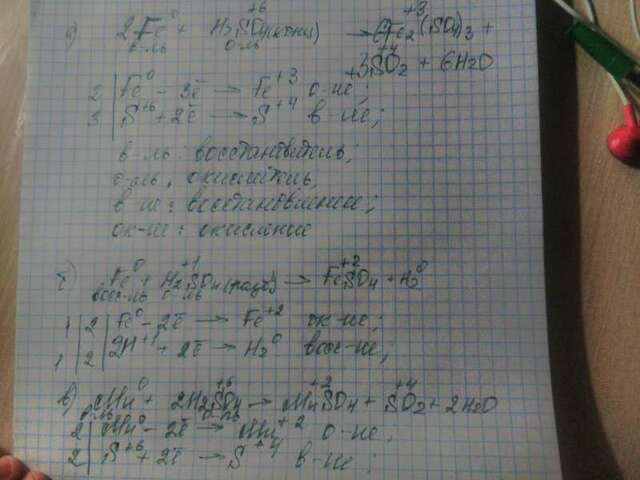 2Fe⁰ + H₂SO₄ → Fe₂⁺³(SO₄)₃ +
в-ль о-ль
+3SO₂⁺⁴ + 6H₂O
2 | Fe⁰ - 3ē → Fe⁺³ о-ие;
3 | S⁺⁶ + 2ē → S⁺⁴ в-ие;
в-ль: восстановитель;
о-ль, окислитель,
в-ие: восстановление;
ок-ие: окисление
Fe⁰ + H₂⁺¹SO₄ → Fe⁺²SO₄ + H₂⁰
восс-ль о-ль
1 | 2 | Fe⁰ - 2ē → Fe⁺² ок-ие;
1 | 2 | 2H⁺¹ + 2ē → H₂⁰ восс-ие;
в) Mn⁰ + 2H₂S⁺⁶O₄ → Mn⁺²SO₄ + S⁺⁴O₂ + 2H₂O
2 | Mn⁰ - 2ē → Mn⁺² о-ие,
2 | S⁺⁶ + 2ē → S⁺⁴ в-ие;